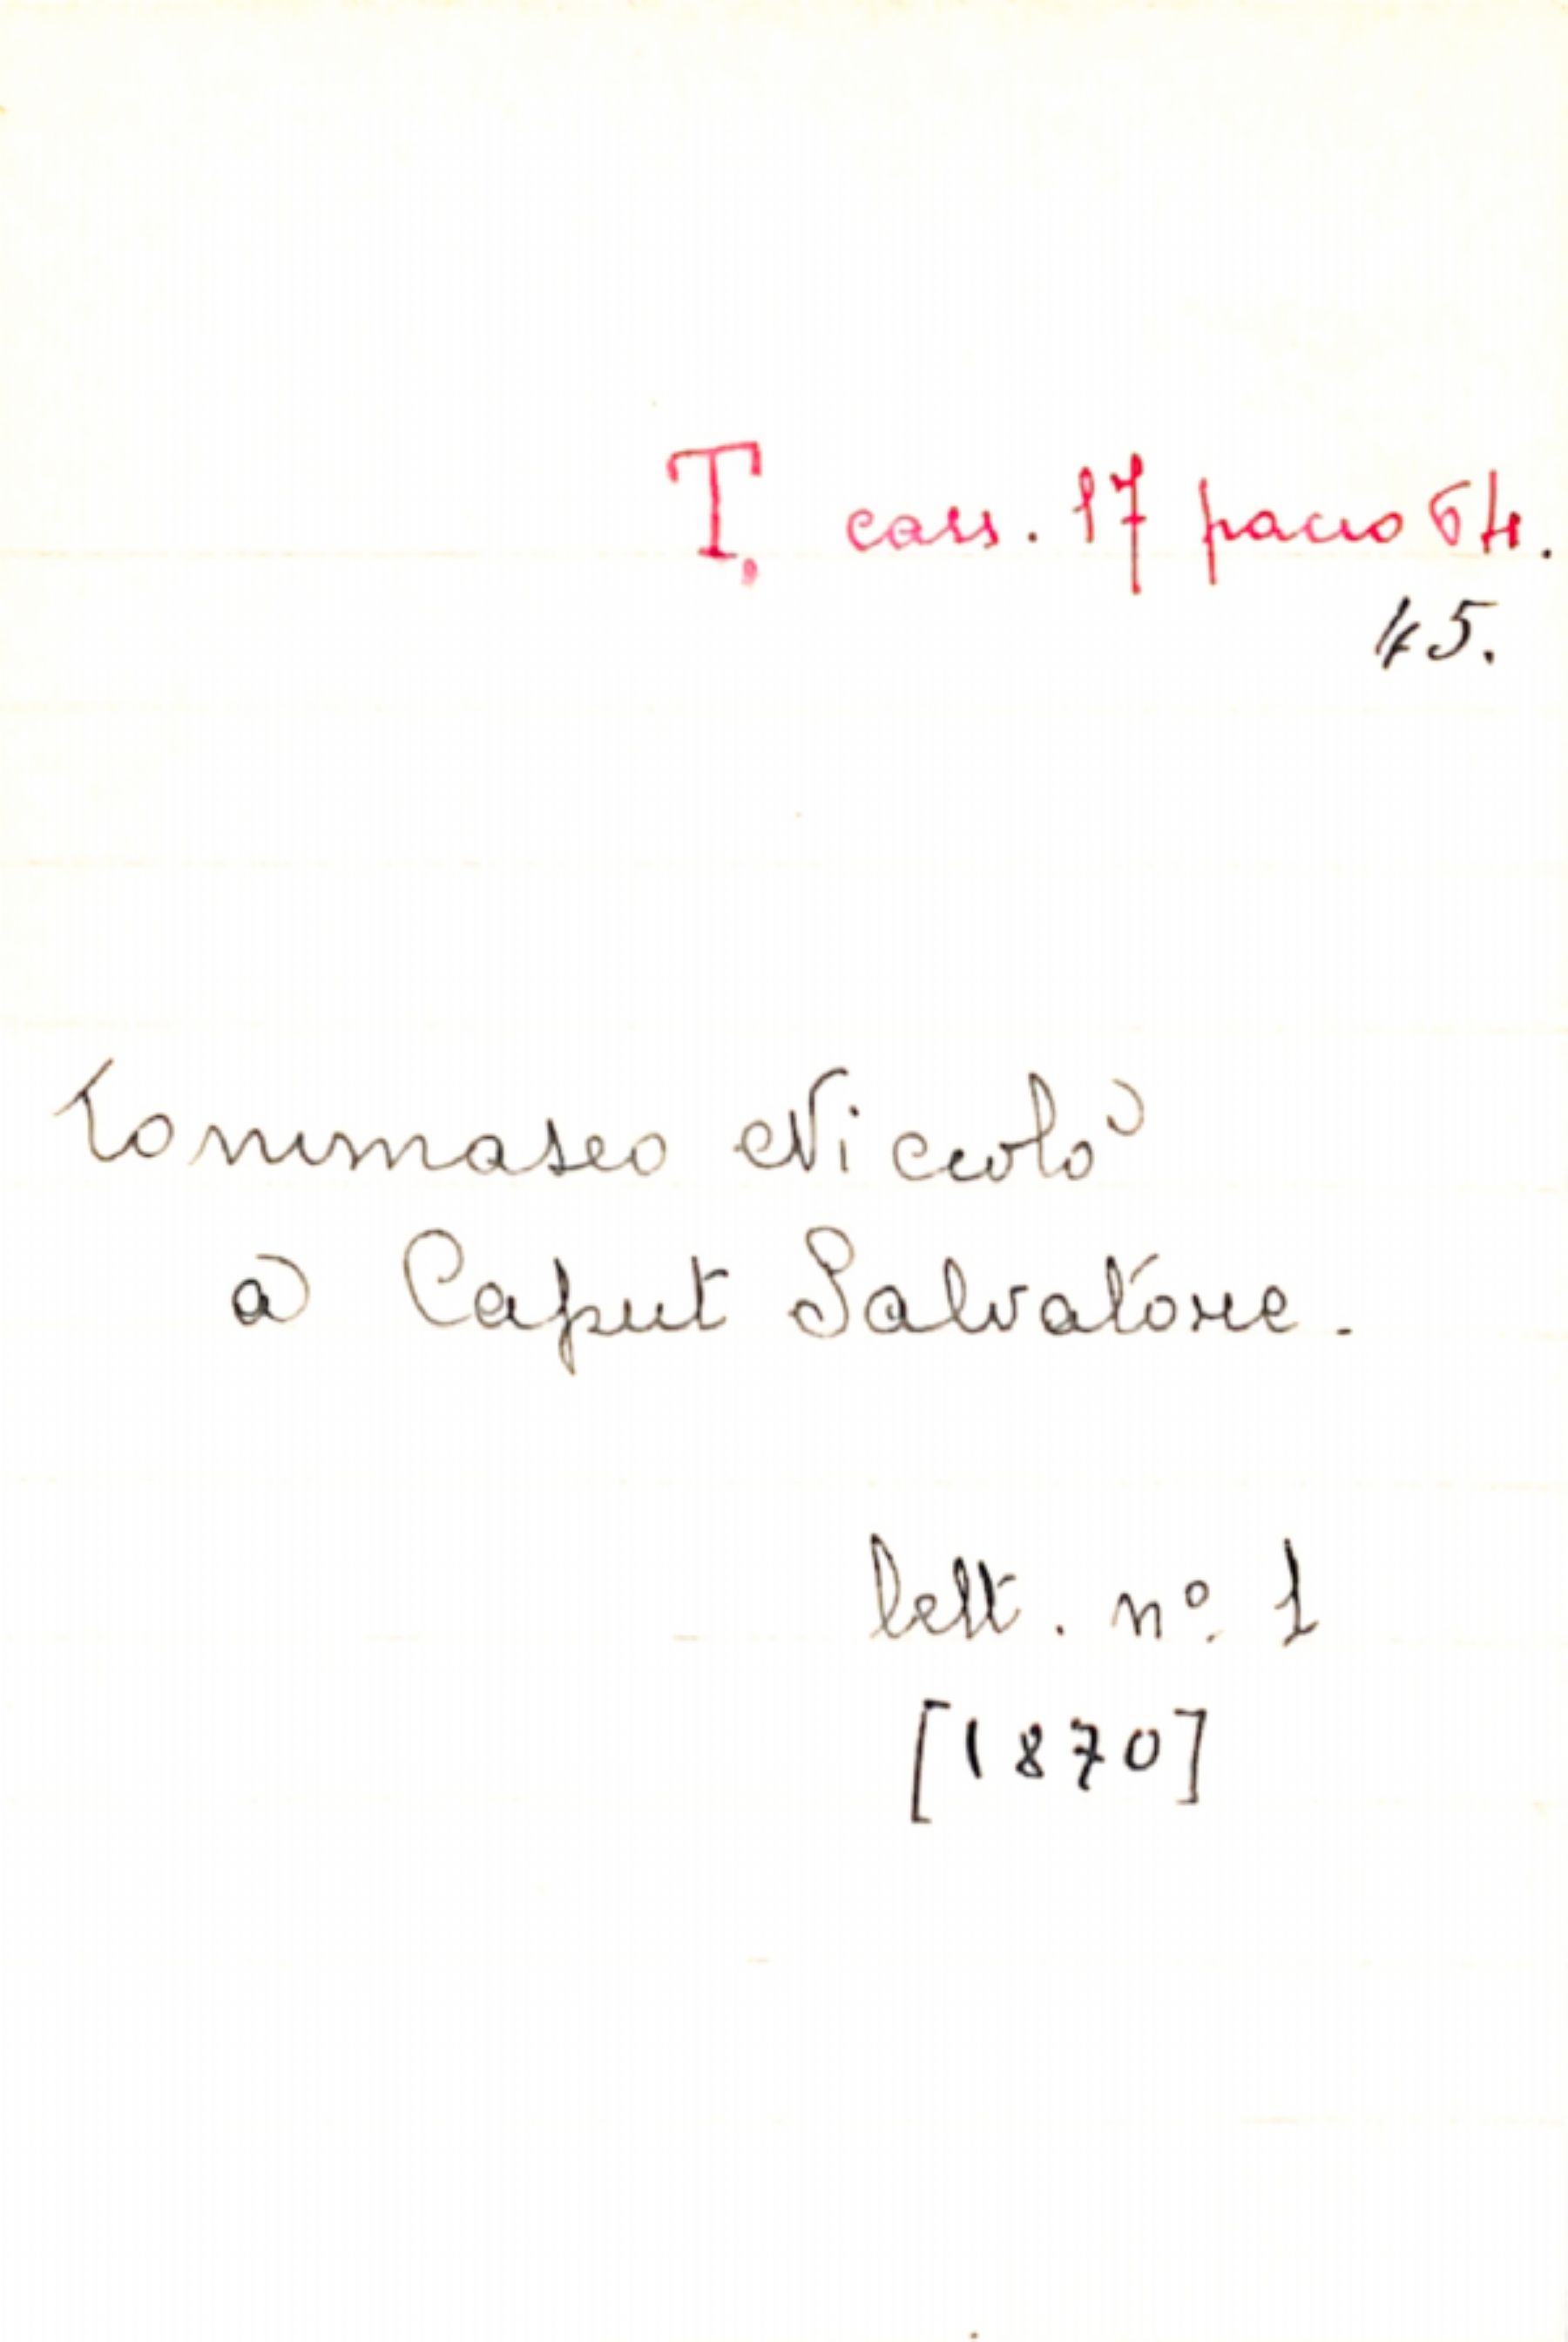 T, cass. 17 pacco 64.
45.
Tommaseo Niccolò
a Caput Salvatore.
lett. nº. 1
[1870]